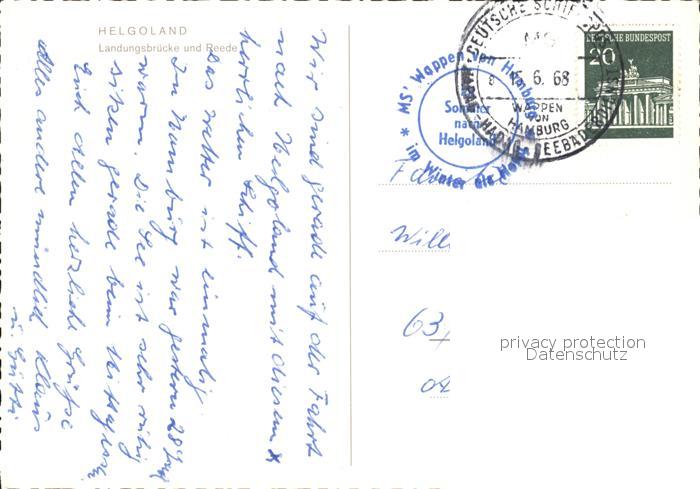 HELGOLAND
Landungsbrücke und Reede
Wir sind gerade auf der Fahrt
nach Helgoland mit diesem
herrlichen Schiff.
Das Wetter ist einmalig.
In Hamburg war gestern 28 Grad
warm. Die See ist sehr ruhig
sitzen gerade beim Mittagessen.
Euch allen herzliche Grüße
alles andere mündlich Klaus
DEUTSCHE SCHIFFSPOST
5.6.68
WAPPEN
VON
HAMBURG
HAPAG-SEEBÄDERDIENST
MS' Wappen von Hamburg
Sommer
nach
Helgoland
im Winter als Hotel
DEUTSCHE BUNDESPOST
20
Fa
Will
63,
privacy protection
Datenschutz